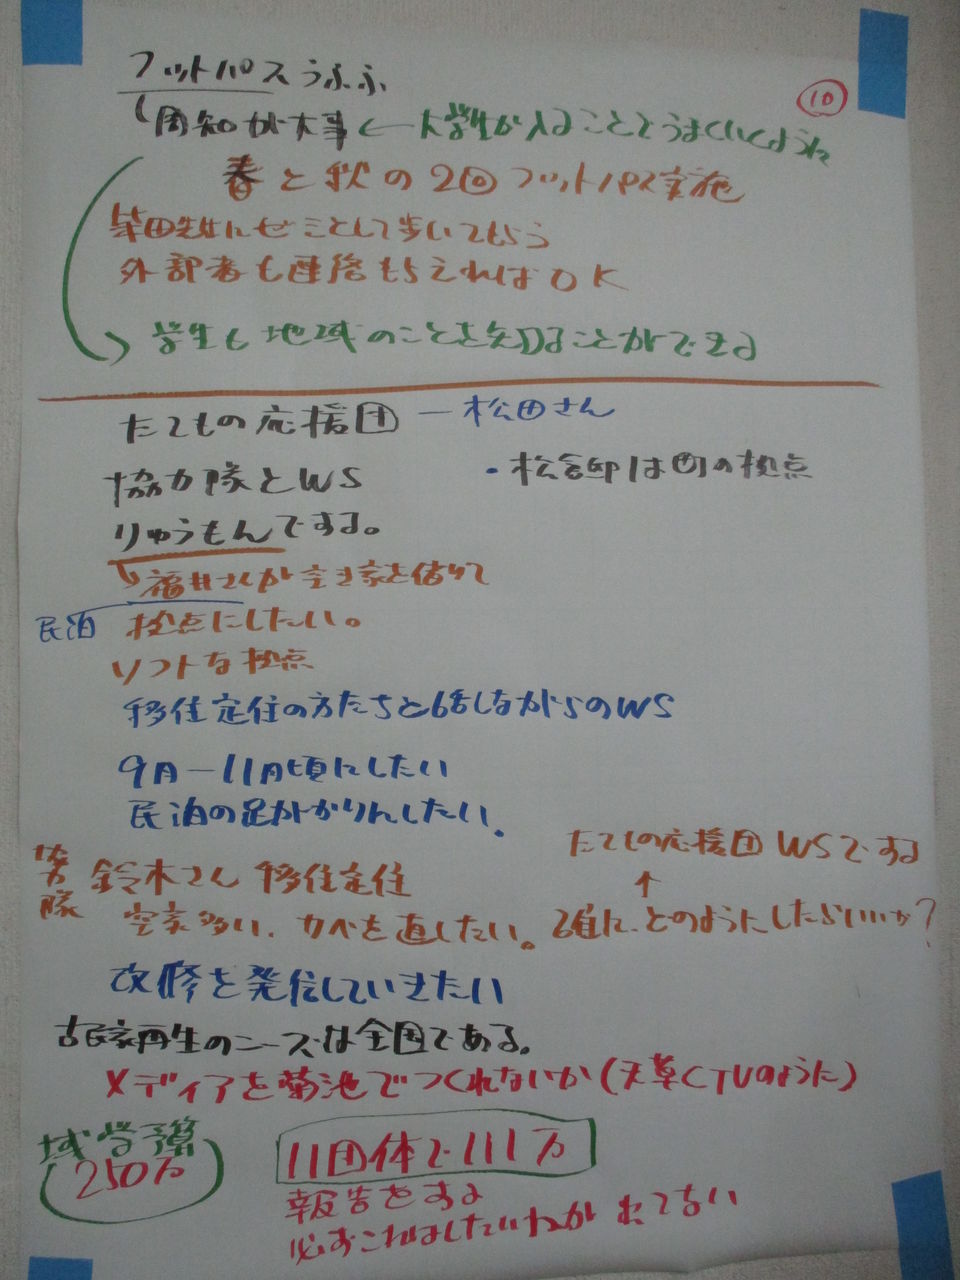 フットパスうふふ
⑩
周知が大事 ← 大学生が入ることでうまくいくように
春と秋の2回フットパス実施
柴田先生にゼミとして歩いてもらう
外部者も連絡もらえればOK
→ 学生も地域のことを知ることができる
たてもの応援団 ― 松田さん
協力隊とWS
・松倉邸は町の拠点
りゅうもんでする。
福井さんが空き家を借りて
民泊 拠点にしたい。
ソフトな拠点
移住定住の方たちと話しながらのWS
9月―11月頃にしたい
民泊の足がかりにしたい。
たてもの応援団WSでする
↑
協力隊 鈴木さん 移住定住
空家多い、カベを直したい。 どのようにしたらいいか?
改修を発信していきたい
古民家再生のニーズは全国である。
メディアを菊池でつくれないか(天草CTVのように)
域学予算
250万
11団体で111万
報告をする
必ずこれはしたい
出てない